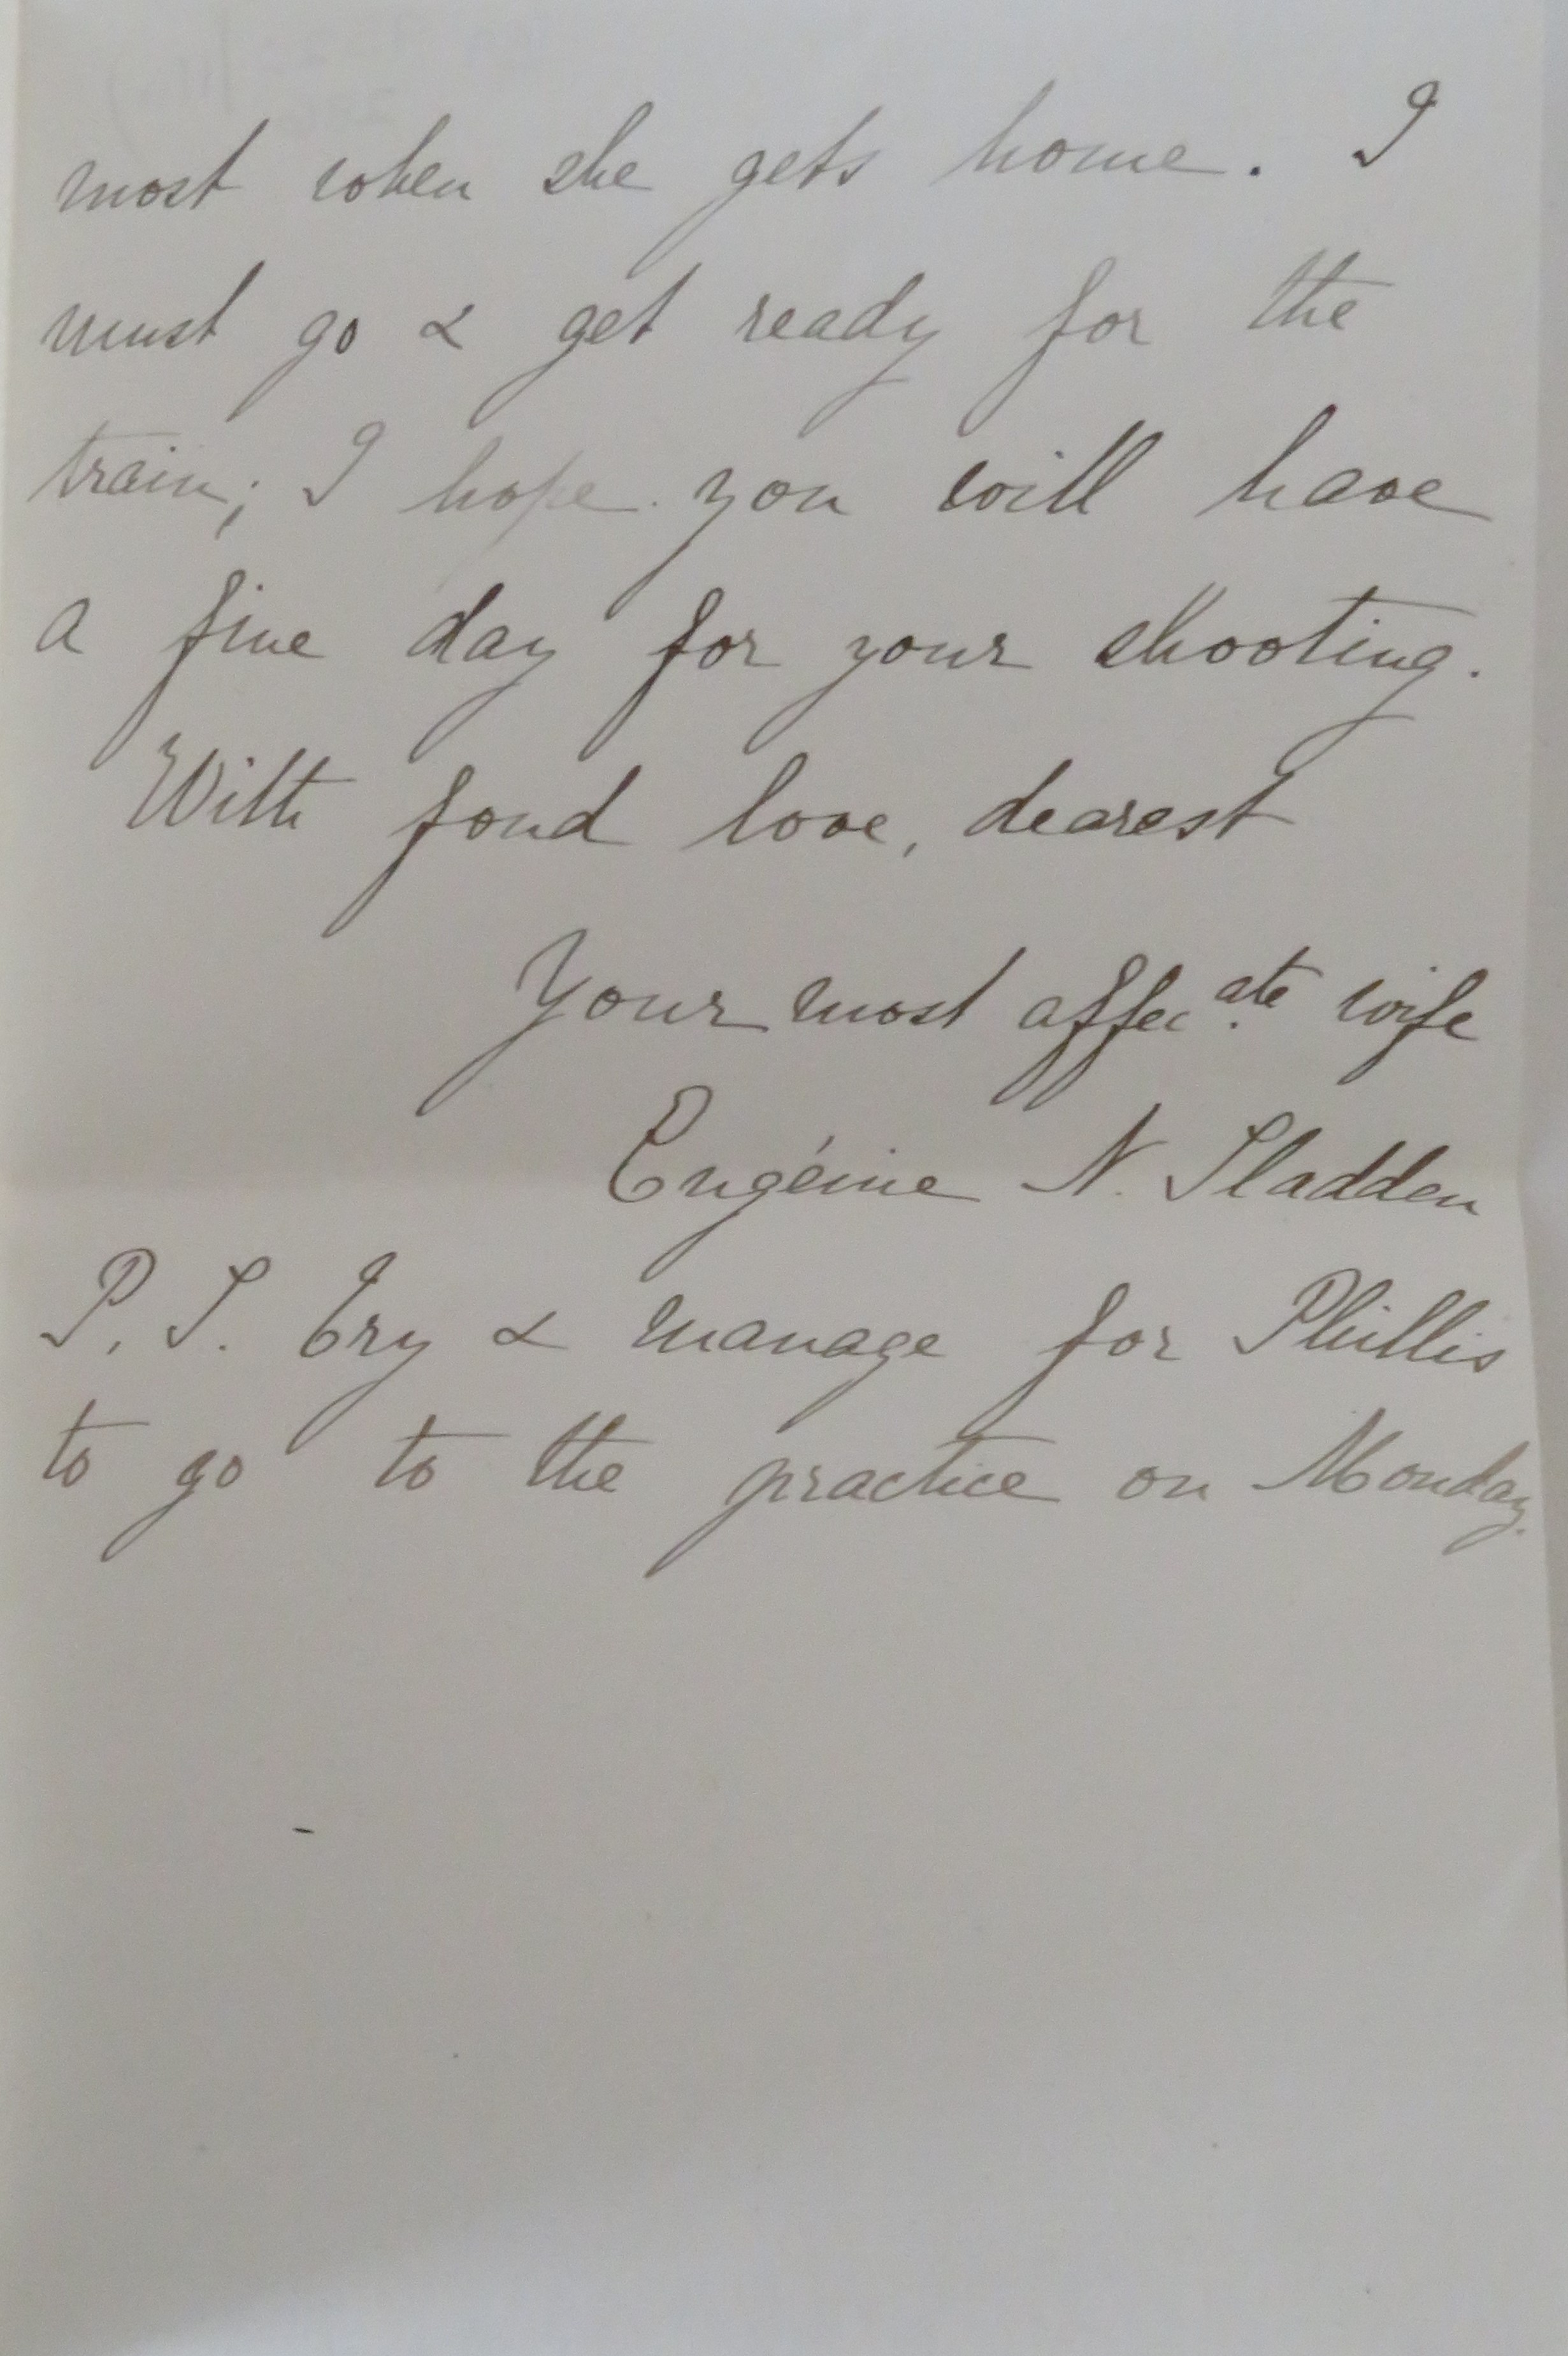 most when she gets home. I
must go & get ready for the
train; I hope you will have
a fine day for your shooting.
With fond love, dearest
Your most affec.ate wife
Eugénie N. Sladden
P. S. Try & manage for Phillis
to go to the practice on Monday.